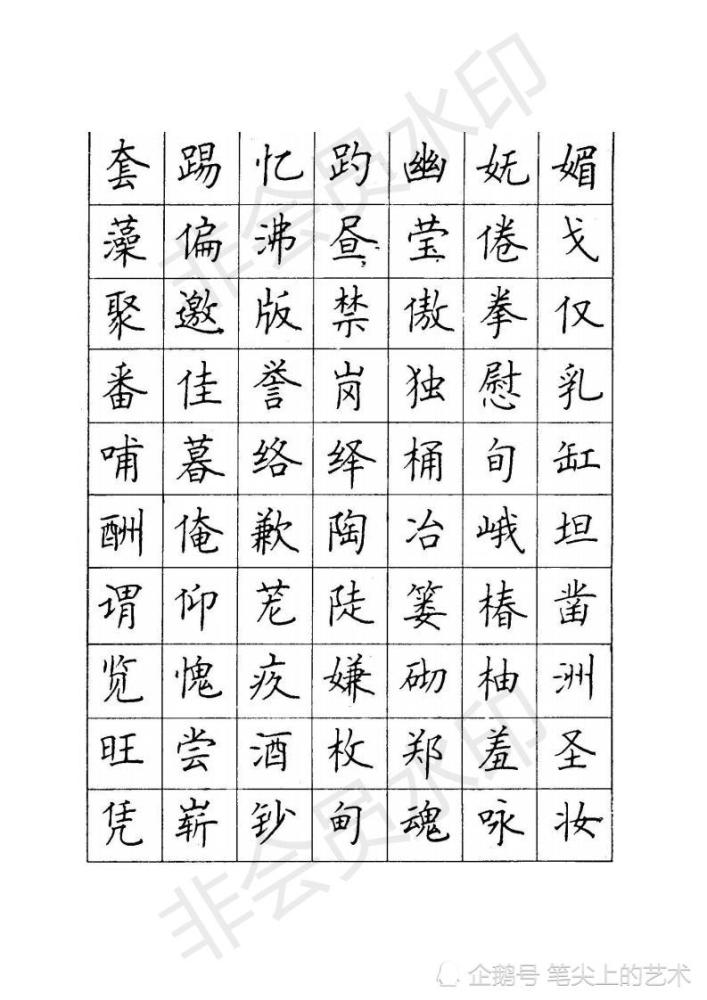 套 踢 忆 趵 幽 妩 媚
藻 偏 沸 昼 莹 倦 戈
聚 邀 版 禁 傲 拳 仅
番 佳 誉 岗 独 慰 乳
哺 暮 络 绎 桶 旬 缸
酬 俺 歉 陶 冶 峨 坦
谓 仰 茏 陡 篓 椿 凿
览 愧 疚 嫌 砌 柚 洲
旺 尝 酒 枚 郑 羞 圣
凭 崭 钞 甸 魂 咏 妆
非会员水印
非会员水印
企鹅号 笔尖上的艺术